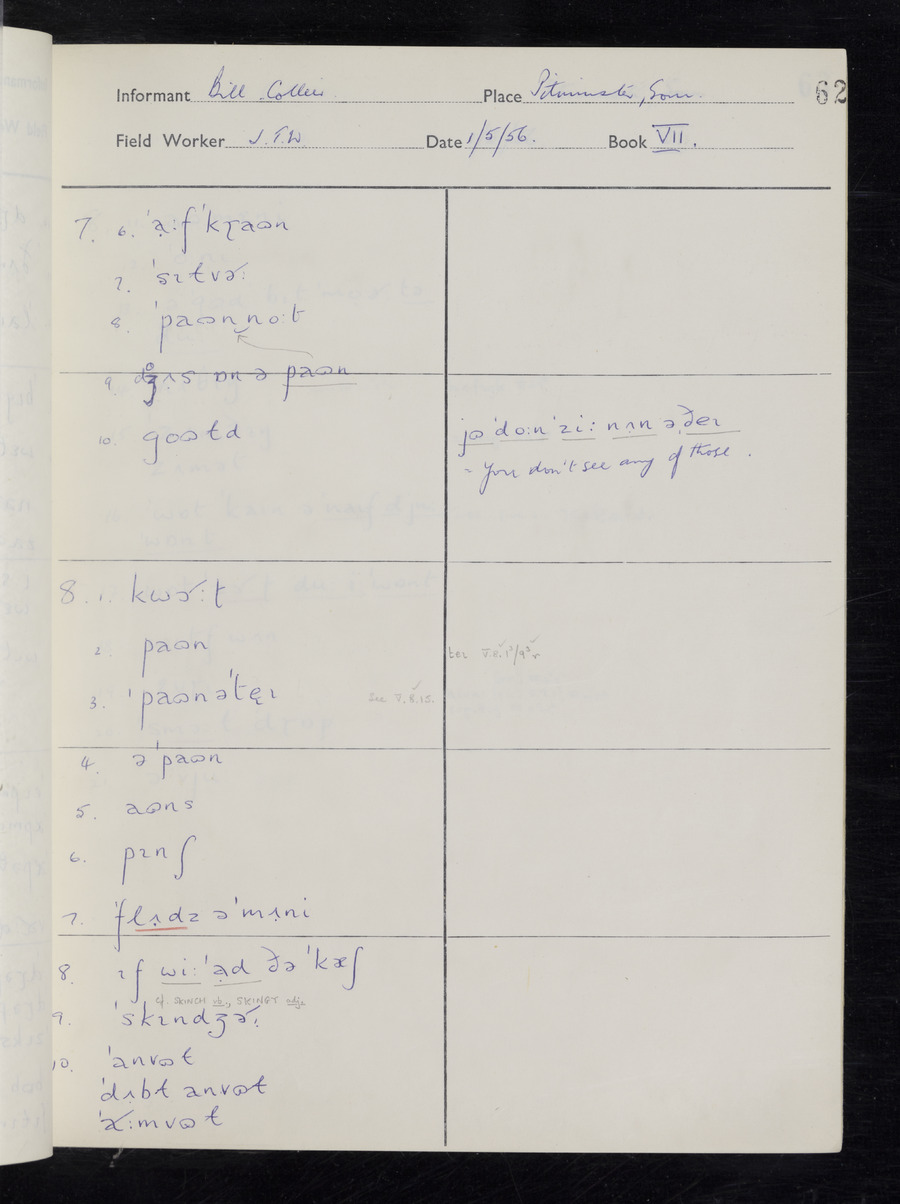 Informant Bill Collier Place Pitminster, Som. 62
Field Worker J.T.W. Date 1/5/56. Book VII.
7. 6. ˈạːfˈkɽaɷn
7. ˈsɪtvə˞ː
8. ˈpaɷn‿noːt
9. dʒ̊ʌs ɒn ə paɷn
10. goɷɫd
jɷ ˈdoːn ˈziː nʌn əˌðeɪ
= You don't see any of those.
8. 1. kwɔ˞ːʈ
2. paɷn
teɪ V.8.1³/9³ r
3. ˈpaɷnəˈtẹɪ
See V.8.15.
4. əˈpaɷn
5. aɷns
6. pɪnʃ
7. ˈflʌ̣dz əˈmʌ̣ni
8. ɪf wiːˈạd ðə ˈkæʃ
cf. SKINCH vb., SKINGY adj.
9. ˈskɪndʒə˞.
10. ˈanvɷt
ˈdʌbt anvɷt
ˈɑ˞ːmvɷt